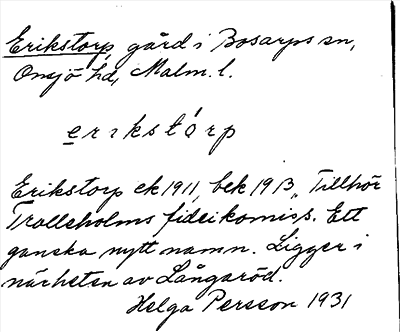 Erikstorp gård i Bosarps sn,
Onsjö hd, Malm. l.
erikstórp
Erikstorp ek 1911, bek 1913, "Tillhör
Trolleholms fideikomiss. Ett
ganska nytt namn. Ligger i
närheten av Långaröd.
Helga Persson 1931